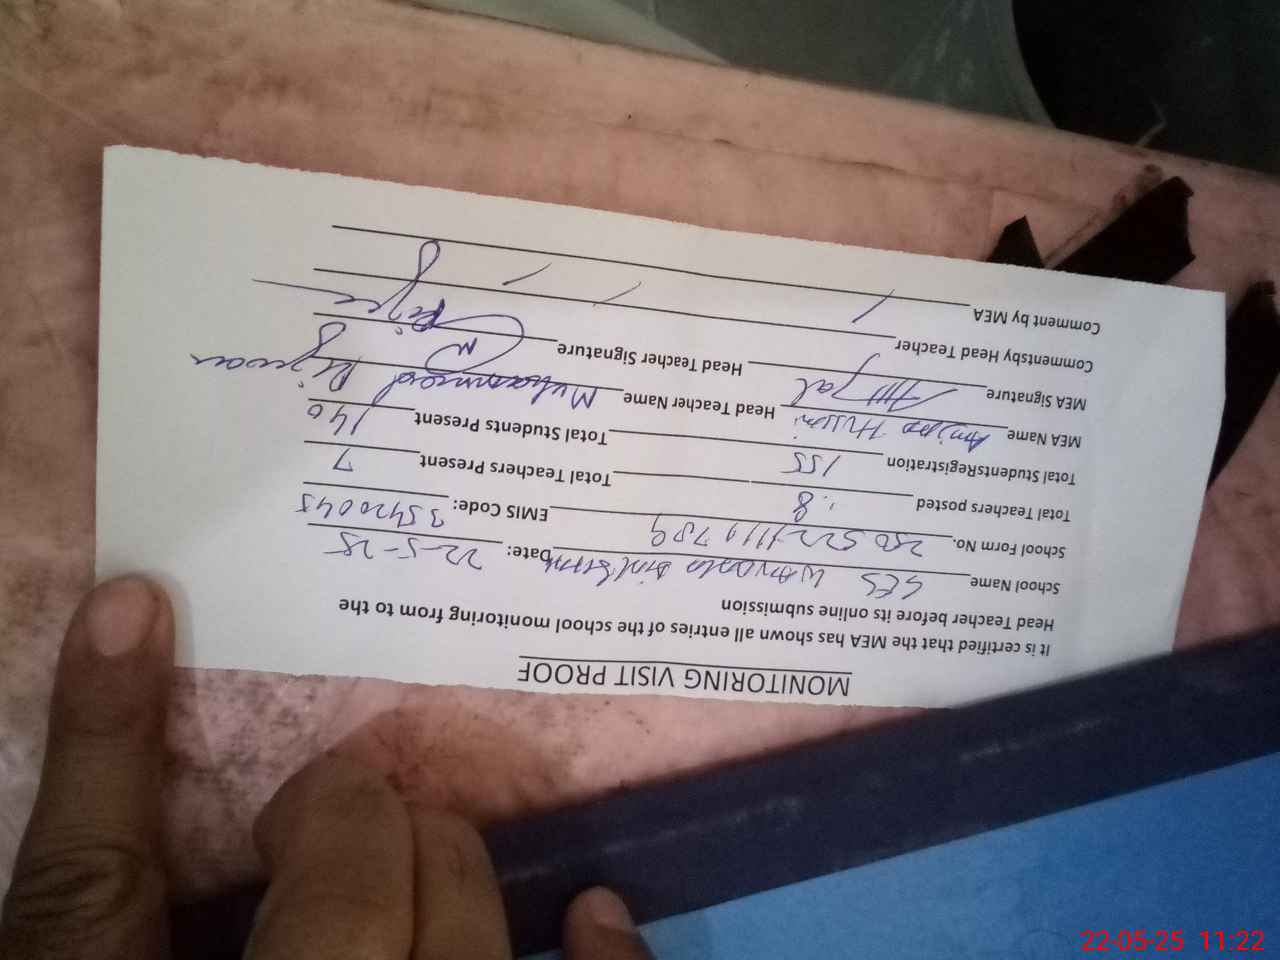 MONITORING VISIT PROOF
It is certified that the MEA has shown all entries of the school monitoring from to the
Head Teacher before its online submission
School Name GES Date: 22-5-25
School Form No. 250522111789 EMIS Code: 35420045
Total Teachers posted 8 Total Teachers Present 7
Total StudentsRegistration 155 Total Students Present 140
MEA Name Hussain Head Teacher Name Muhammad Rizwan
MEA Signature Head Teacher Signature
Commentsby Head Teacher
Comment by MEA
22-05-25 11:22